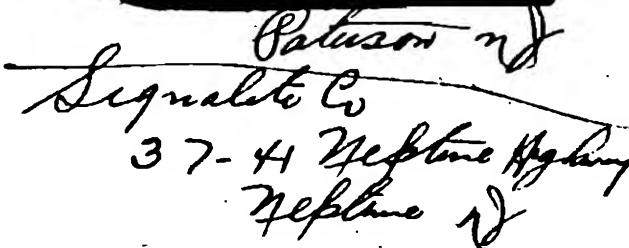 Paterson NJ
Signalite Co
37-41 Neptune Highway
Neptune NJ